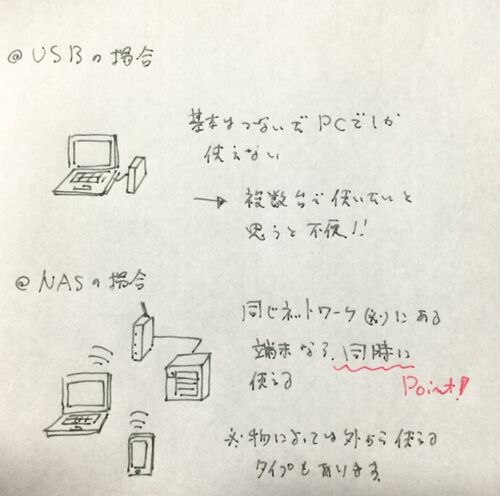 @USBの場合
基本はつないだPCでしか
使えない
→ 複数台で使いたいと
思うと不便!!
@NASの場合
同じネットワーク(※)にある
端末なら、同時に
使える
Point!
※物によっては外から使える
タイプもあります。